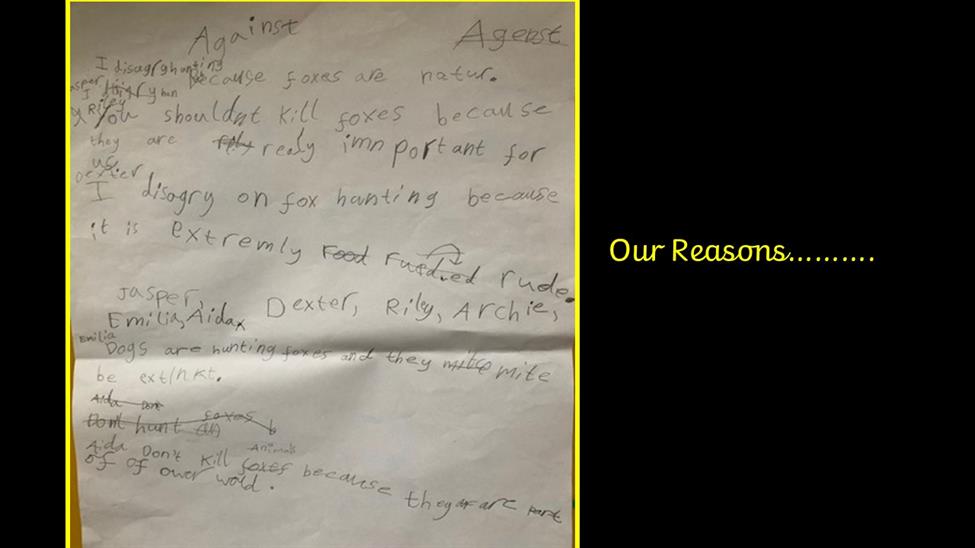 Against Agenst
I disagry hunting
Jasper because foxes are natur.
I disigry hun
Riley
You shouldnt kill foxes because
they are realy imn portant for
us
Dexter
I disagry on fox hunting because
it is extremly Food rude.
Jasper,
Emilia, Aida, Dexter, Riley, Archie,
Emilia
Dogs are hunting foxes and they mite mite
be extinkt.
Aida Dont
Dont hunt foxes
Aida Don't kill foxes Animals because they are part
of of ower wold.
Our Reasons..........